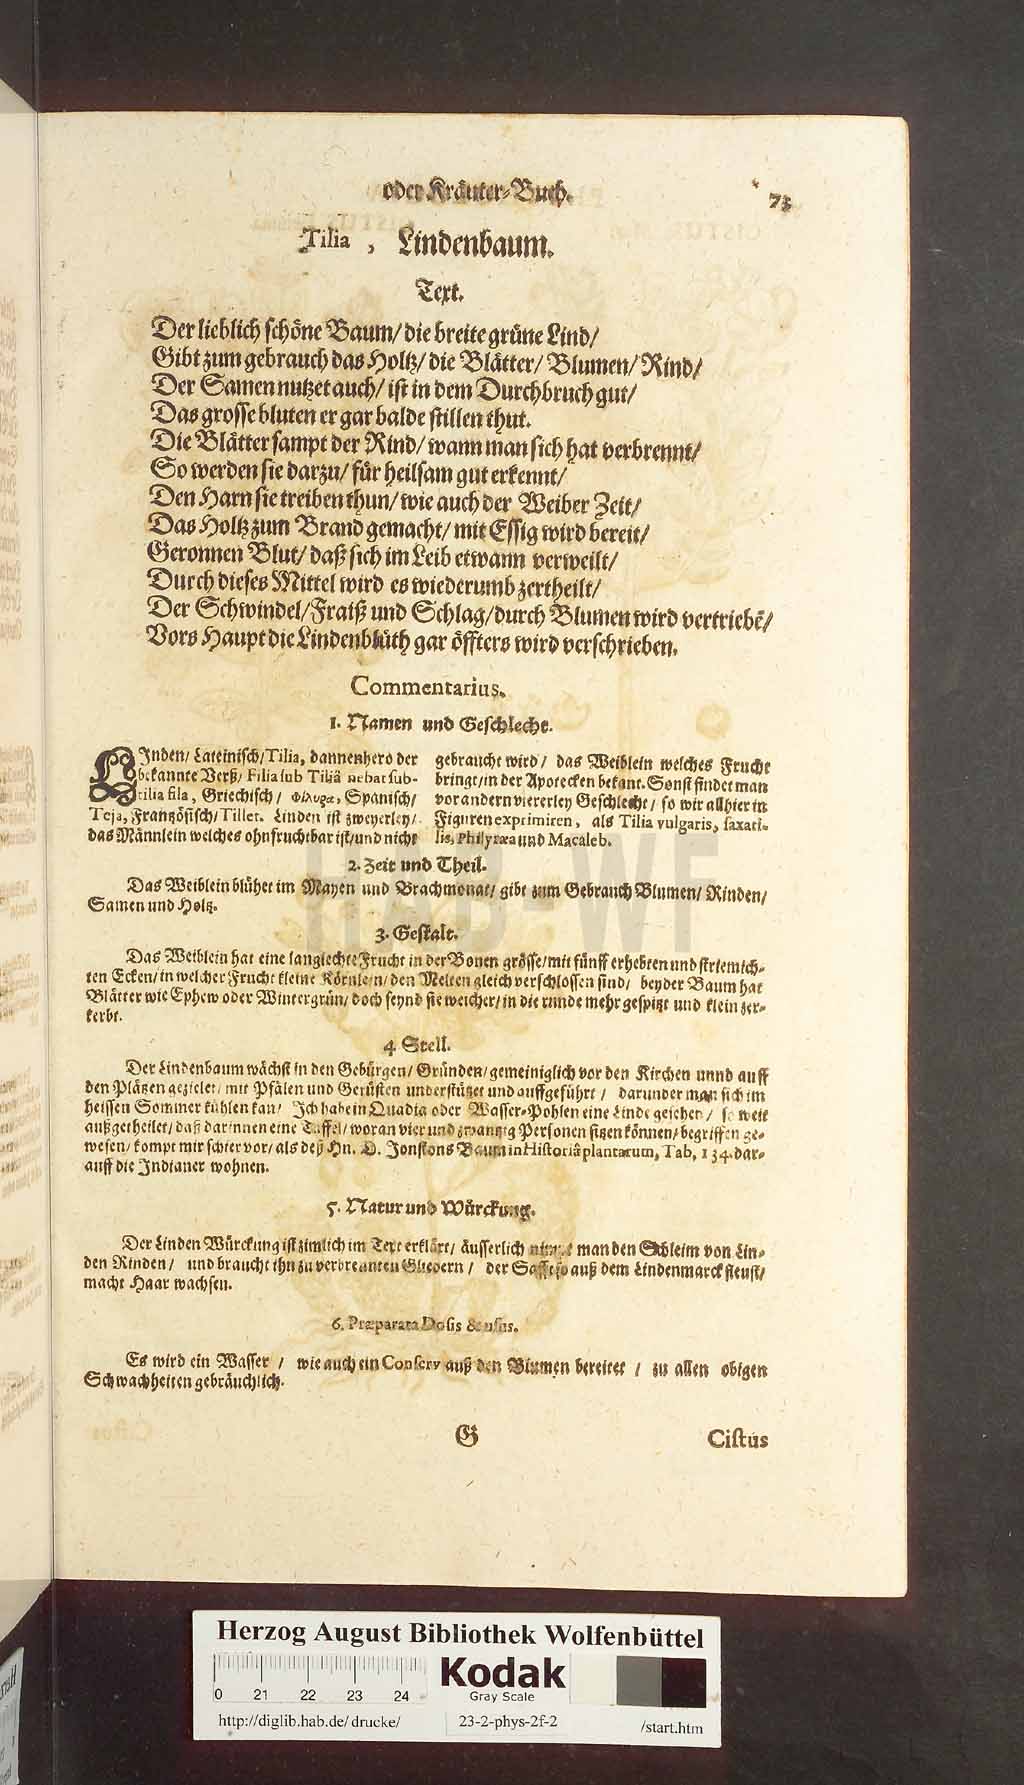 oder Kräuter-Buch.
73
Tilia, Lindenbaum.
Text.
Der lieblich schöne Baum/ die breite grüne Lind/
Gibt zum gebrauch das Holtz/ die Blätter/ Blumen/ Rind/
Der Samen nutzet auch/ ist in dem Durchbruch gut/
Das grosse bluten er gar balde stillen thut.
Die Blätter sampt der Rind/ wann man sich hat verbrennt/
So werden sie darzu/ für heilsam gut erkennt/
Den Harn sie treiben thun/ wie auch der Weiber Zeit/
Das Holtz zum Brand gemacht/ mit Essig wird bereit/
Geronnen Blut/ daß sich im Leib etwann verweilt/
Durch dieses Mittel wird es wiederumb zertheilt/
Der Schwindel/ Fraiß und Schlag/ durch Blumen wird vertriebē/
Vors Haupt die Lindenblüth gar öffters wird verschrieben.
Commentarius.
1. Namen und Geschlecht.
LInden/ Lateinisch/ Tilia, dannenhero der
bekannte Verß/ Filia sub Tiliâ nebat sub-
tilia fila, Griechisch/ Φίλυρα, Spanisch/
Teja, Französisch/ Tillet. Linden ist zweyerley/
das Männlein welches ohnfruchtbar ist/ und nicht
gebraucht wird/ das Weiblein welches Frucht
bringt/ in der Apotecken bekant. Sonst findet man
vor andern viererley Geschlecht/ so wir allhier in
Figuren exprimiren, als Tilia vulgaris, saxati-
lis, Philyræa und Macaleb.
2. Zeit und Theil.
Das Weiblein blühet im Mayen und Brachmonat/ gibt zum Gebrauch Blumen/ Rinden/
Samen und Holtz.
3. Gestalt.
Das Weiblein hat eine langlechte Frucht in der Bonen grösse/ mit fünff erhebten und striemich-
ten Ecken/ in welcher Frucht kleine Körnlein/ den Melten gleich verschlossen sind/ beyder Baum hat
Blätter wie Ephew oder Wintergrün/ doch seynd sie weicher/ in die runde mehr gespitzt und klein zer-
kerbt.
4. Stell.
Der Lindenbaum wächst in den Gebürgen/ Gründen/ gemeiniglich vor den Kirchen unnd auff
den Plätzen gezielet/ mit Pfälen und Gerüsten understützet und auffgeführt/ darunder man sich im
heissen Sommer kühlen kan/ Ich habe in Quadia oder Wasser-Pohlen eine Linde gesehen/ so weit
außgetheilet/ daß darinnen eine Taffel/ woran vier und zwantzig Personen sitzen können/ begriffen ge-
wesen/ kompt mir schier vor/ als deß Hn. D. Jonstons Baum in Historiâ plantarum, Tab, 134. dar-
auff die Indianer wohnen.
5. Natur und Würckung.
Der Linden Würckung ist zimlich im Text erklärt/ äusserlich nimpt man den Schleim von Lin-
den Rinden/ und braucht ihn zu verbrennten Gliedern/ der Safft so auß dem Lindenmarck fleust/
macht Haar wachsen.
6. Præparata Dosis & usus.
Es wird ein Wasser/ wie auch ein Conserv auß den Blumen bereitet/ zu allen obigen
Schwachheiten gebräuchlich.
G
Cistus
HAB-WF
Herzog August Bibliothek Wolfenbüttel
0 21 22 23 24
Kodak
Gray Scale
http://diglib.hab.de/drucke/
23-2-phys-2f-2
/start.htm